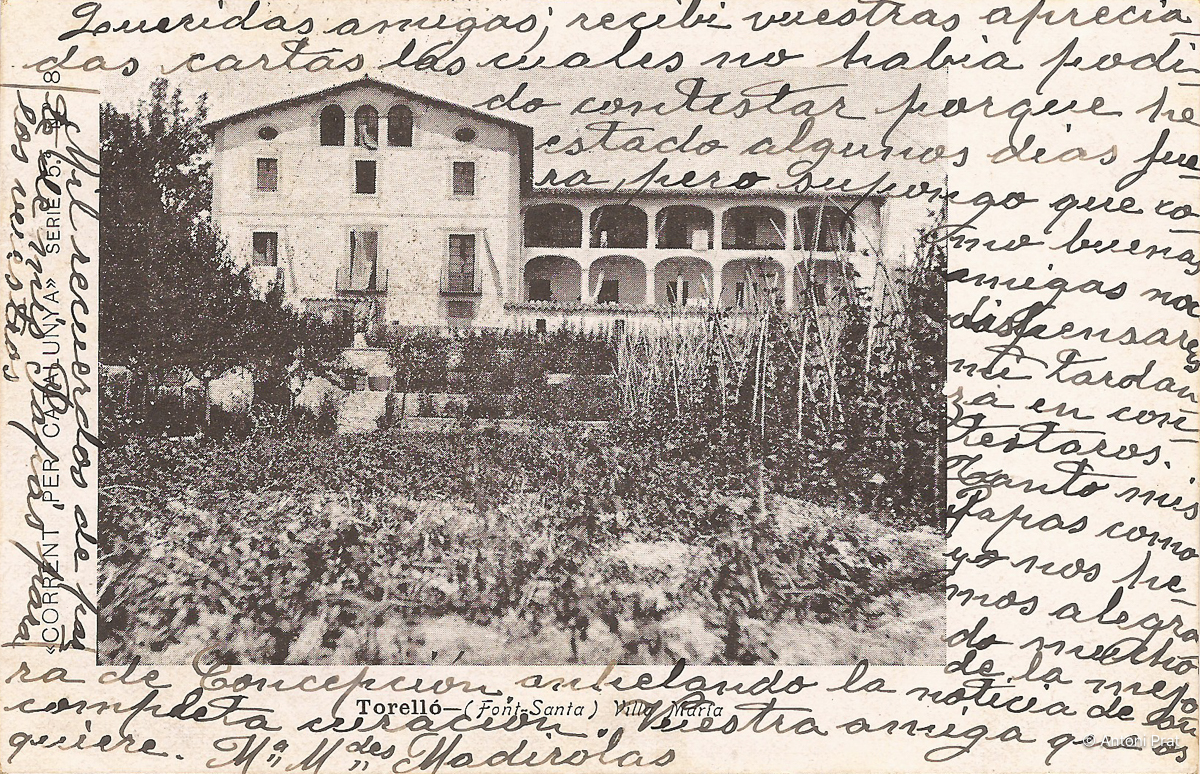 Queridas amigas; recibí vuestras aprecia
das cartas las cuales no habia podi
do contestar porque he
estado algunos dias fue
ra, pero supongo que co
mo buenas
amigas no
dispensareis
mi tardan
za en con
testaros.
Tanto mis
Papás como
yo nos he
mos alegra
do mucho
de la mejo
ra de Concepción anhelando la noticia de su
completa curación. Vuestra amiga que os
quiere. Mª Mdes Madirolas
Mil recuerdos de par
te de mis Papás para
los vuestros
«CORRENT PER CATALUNYA» SERIE 5: 8
Torelló—(Font-Santa) Villa María
© Antoni Prat